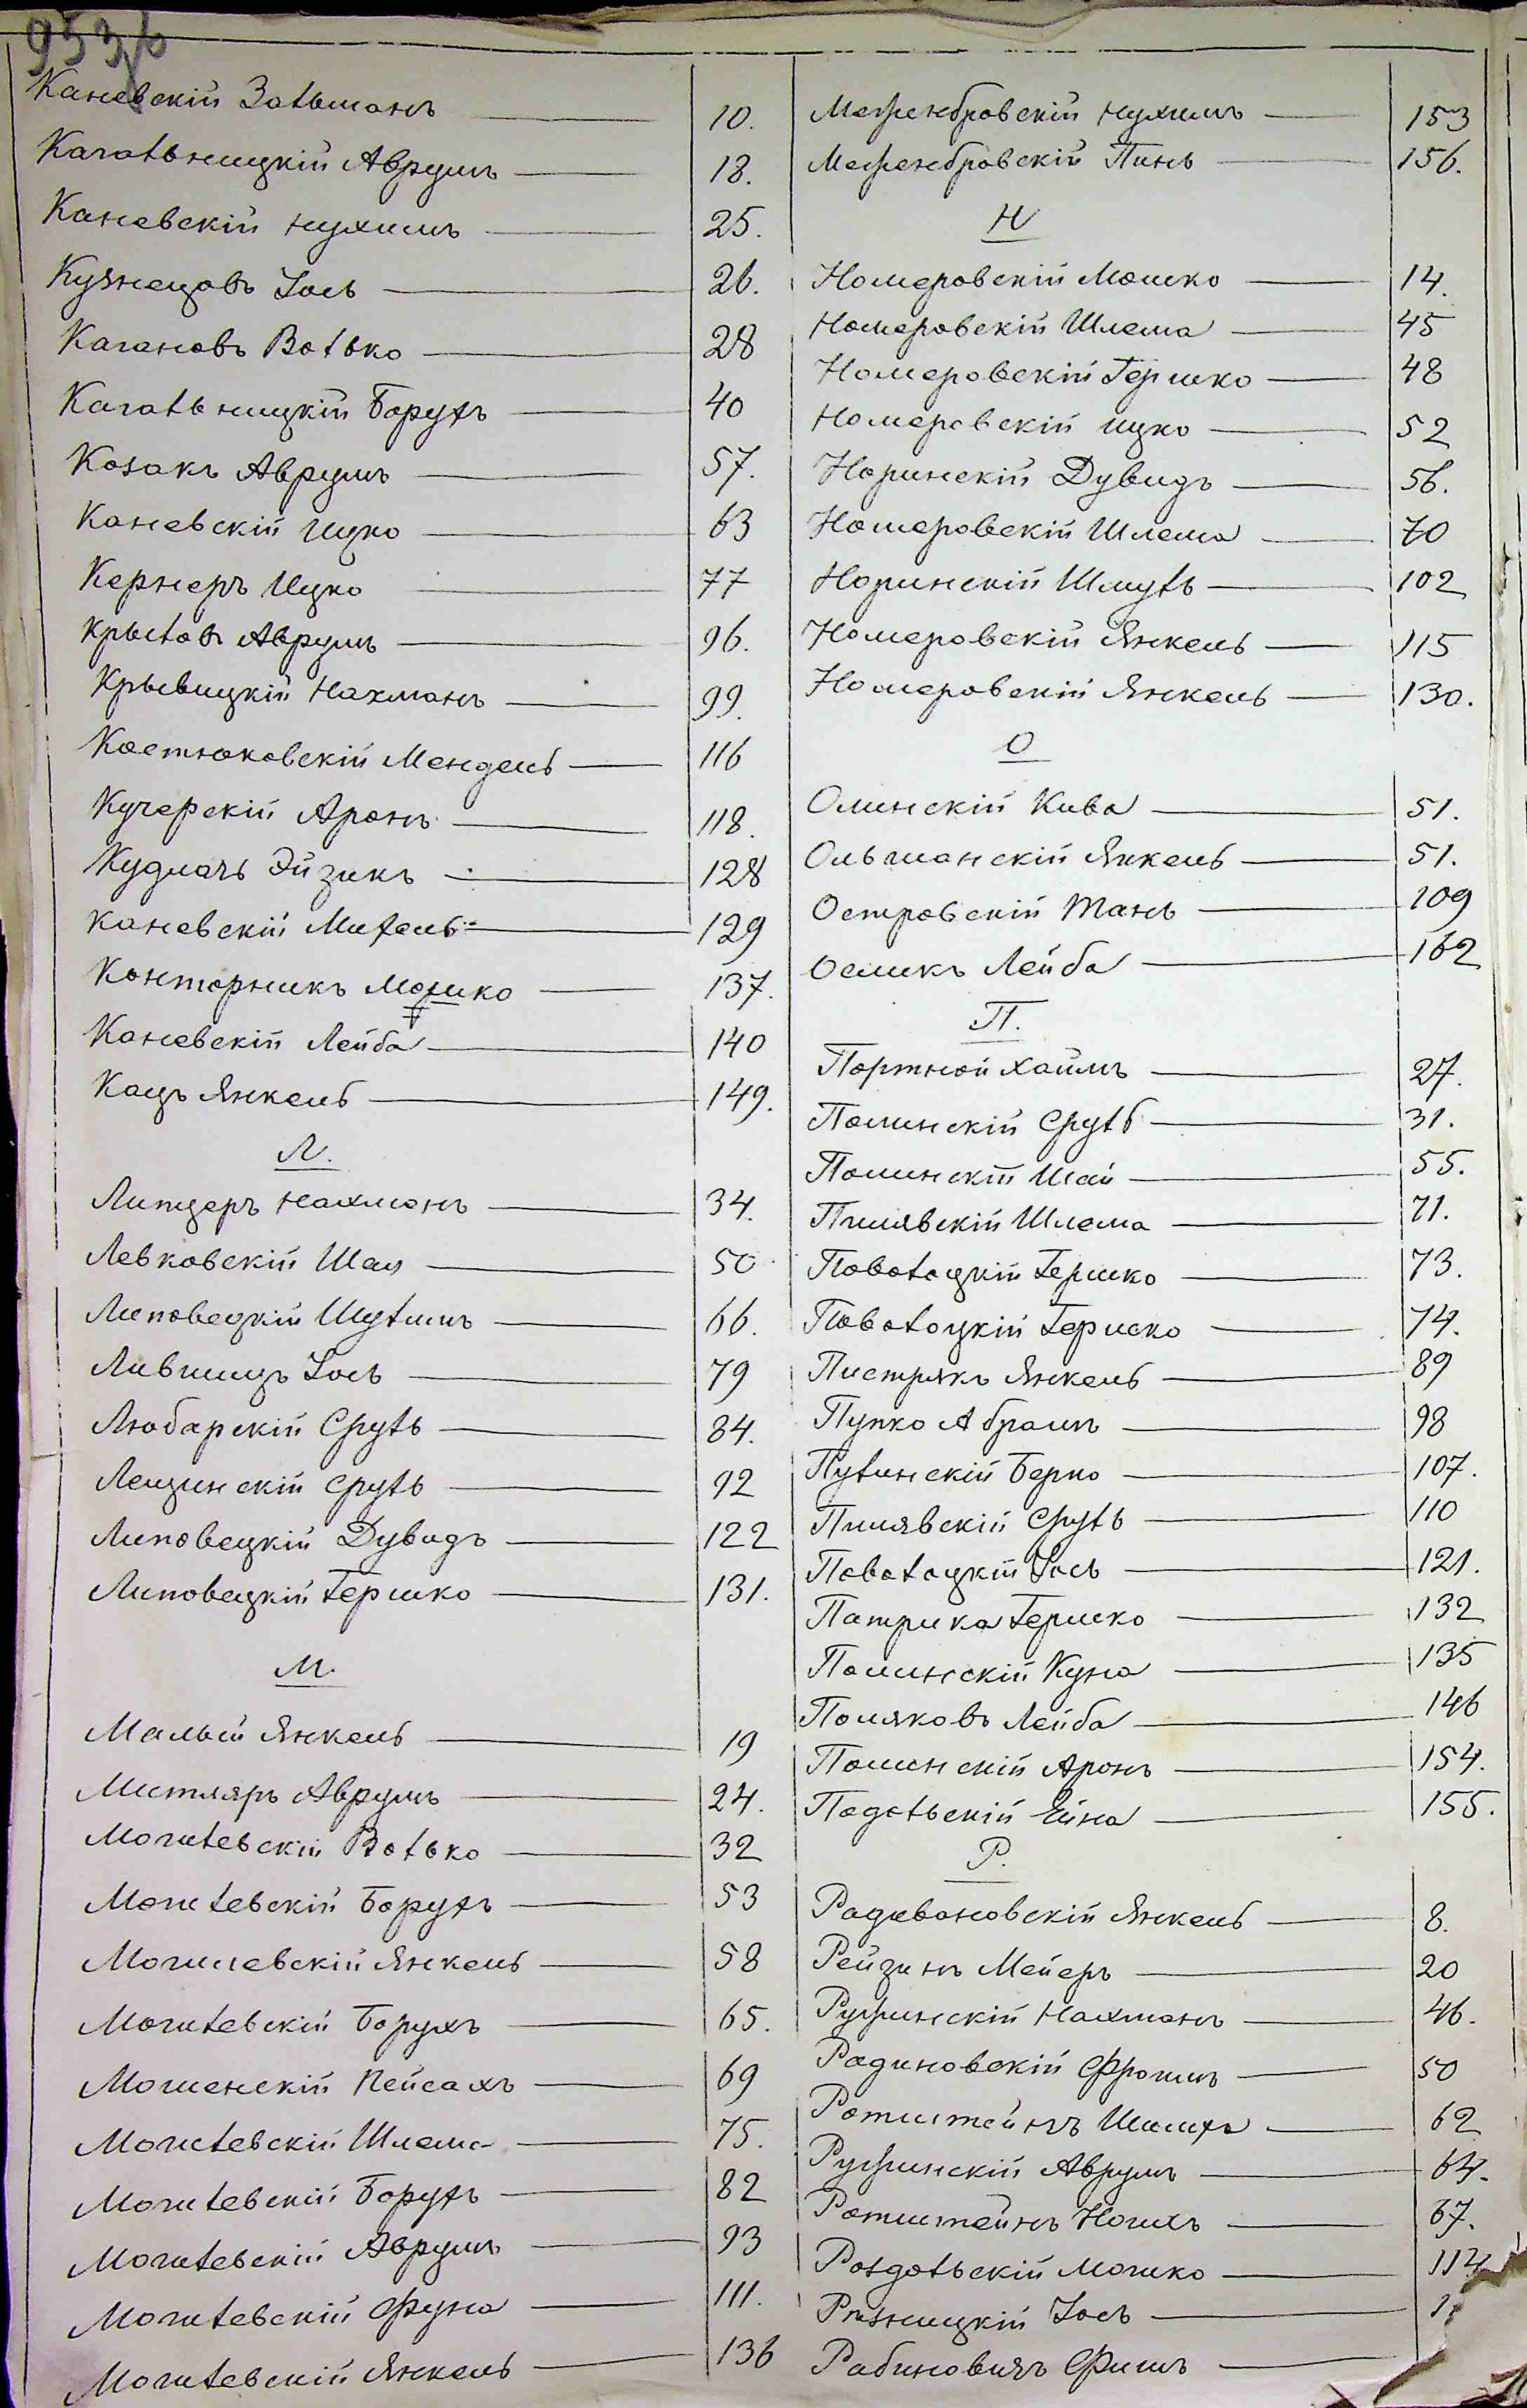 953/б
Каневскій Зальманъ 10.
Кагальницкій Аврумъ 18.
Каневскій Нухимъ 25.
Кузнецовъ Іось 26.
Кагановъ Волько 28
Кагальницкій Борухъ 40
Козакъ Аврумъ 57.
Каневскій Ицко 63
Кернеръ Ицко 77
Крыловъ Аврумъ 96.
Крывицкій Нахманъ 99.
Костюковскій Мендель 116
Кучерскій Аронъ 118.
Кудмачъ Эйзикъ 128
Каневскій Михель 129
Конторникъ Мошко 137.
Каневскій Лейба 140
Кацъ Янкель 149.
Л.
Липцеръ Нахманъ 34.
Левковскій Шая 50
Липовецкій Шулимъ 66.
Лившицъ Іось 79
Любарскій Сруль 84.
Лещинскій Сруль 92
Липовецкій Дувидъ 122
Липовецкій Гершко 131.
М.
Малый Янкель 19
Митляръ Аврумъ 24.
Могилевскій Волько 32
Могилевскій Борухъ 53
Могилевскій Янкель 58
Могилевскій Борухъ 65.
Мошенскій Пейсахъ 69
Могилевскій Шлема 75.
Могилевскій Борухъ 82
Могилевскій Аврумъ 93
Могилевскій Фуна 111.
Могилевскій Янкель 136
Межембровскій Нухимъ 153
Межембровскій Пинь 156.
Н
Номеровскій Мошко 14.
Номеровскій Шлема 45
Номеровскій Гершко 48
Номеровскій Ицко 52
Норинскій Дувидъ 56.
Номеровскій Шлема 70
Норинскій Шмуль 102
Номеровскій Янкель 115
Номеровскій Янкель 130.
О
Олинскій Кива 51.
Ольшанскій Янкель 51.
Островскій Танъ 109
Осликъ Лейба 162
П.
Портной Хаимъ 27.
Полинскій Сруль 31.
Полинскій Шая 55.
Пилявскій Шлема 71.
Поволоцкій Гершко 73.
Поволоцкій Гершко 74.
Пистрякъ Янкель 89
Пупко Абрамъ 98
Пулинскій Берко 107.
Пилявскій Сруль 110
Поволоцкій Іось 121.
Патрика Гершко 132
Полинскій Куна 135
Поляковъ Лейба 146
Полинскій Аронъ 154.
Подольскій Ейна 155.
Р.
Радивановскій Янкель 8.
Рейзинъ Мейеръ 20
Ружинскій Нахманъ 46.
Радиновскій Фроимъ 50
Ротштейнъ Шимха 62
Ружинскій Аврумъ 64.
Ротштейнъ Ногихъ 67.
Роздольскій Мошко 114
Ризницкій Іось
Рабиновичъ Фишъ